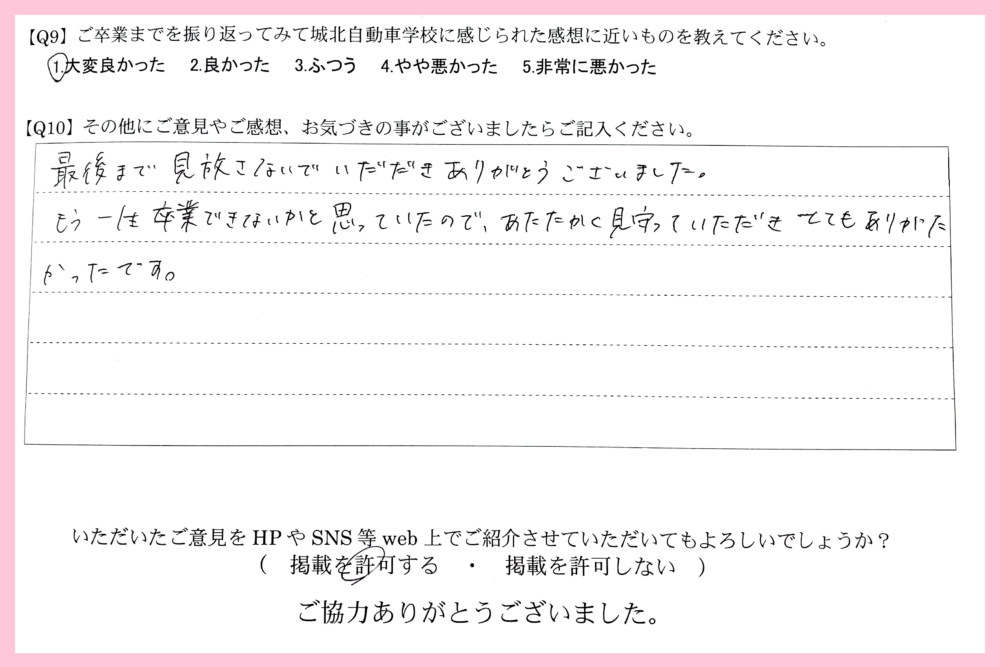 【Q9】ご卒業までを振り返ってみて城北自動車学校に感じられた感想に近いものを教えてください。
1.大変良かった 2.良かった 3.ふつう 4.やや悪かった 5.非常に悪かった
【Q10】その他にご意見やご感想、お気づきの事がございましたらご記入ください。
最後まで見放さないでいただきありがとうございました。
もう一生卒業できないかと思っていたので、あたたかく見守っていただきとてもありがた
かったです。
いただいたご意見をHPやSNS等web上でご紹介させていただいてもよろしいでしょうか？
（ 掲載を許可する ・ 掲載を許可しない ）
ご協力ありがとうございました。